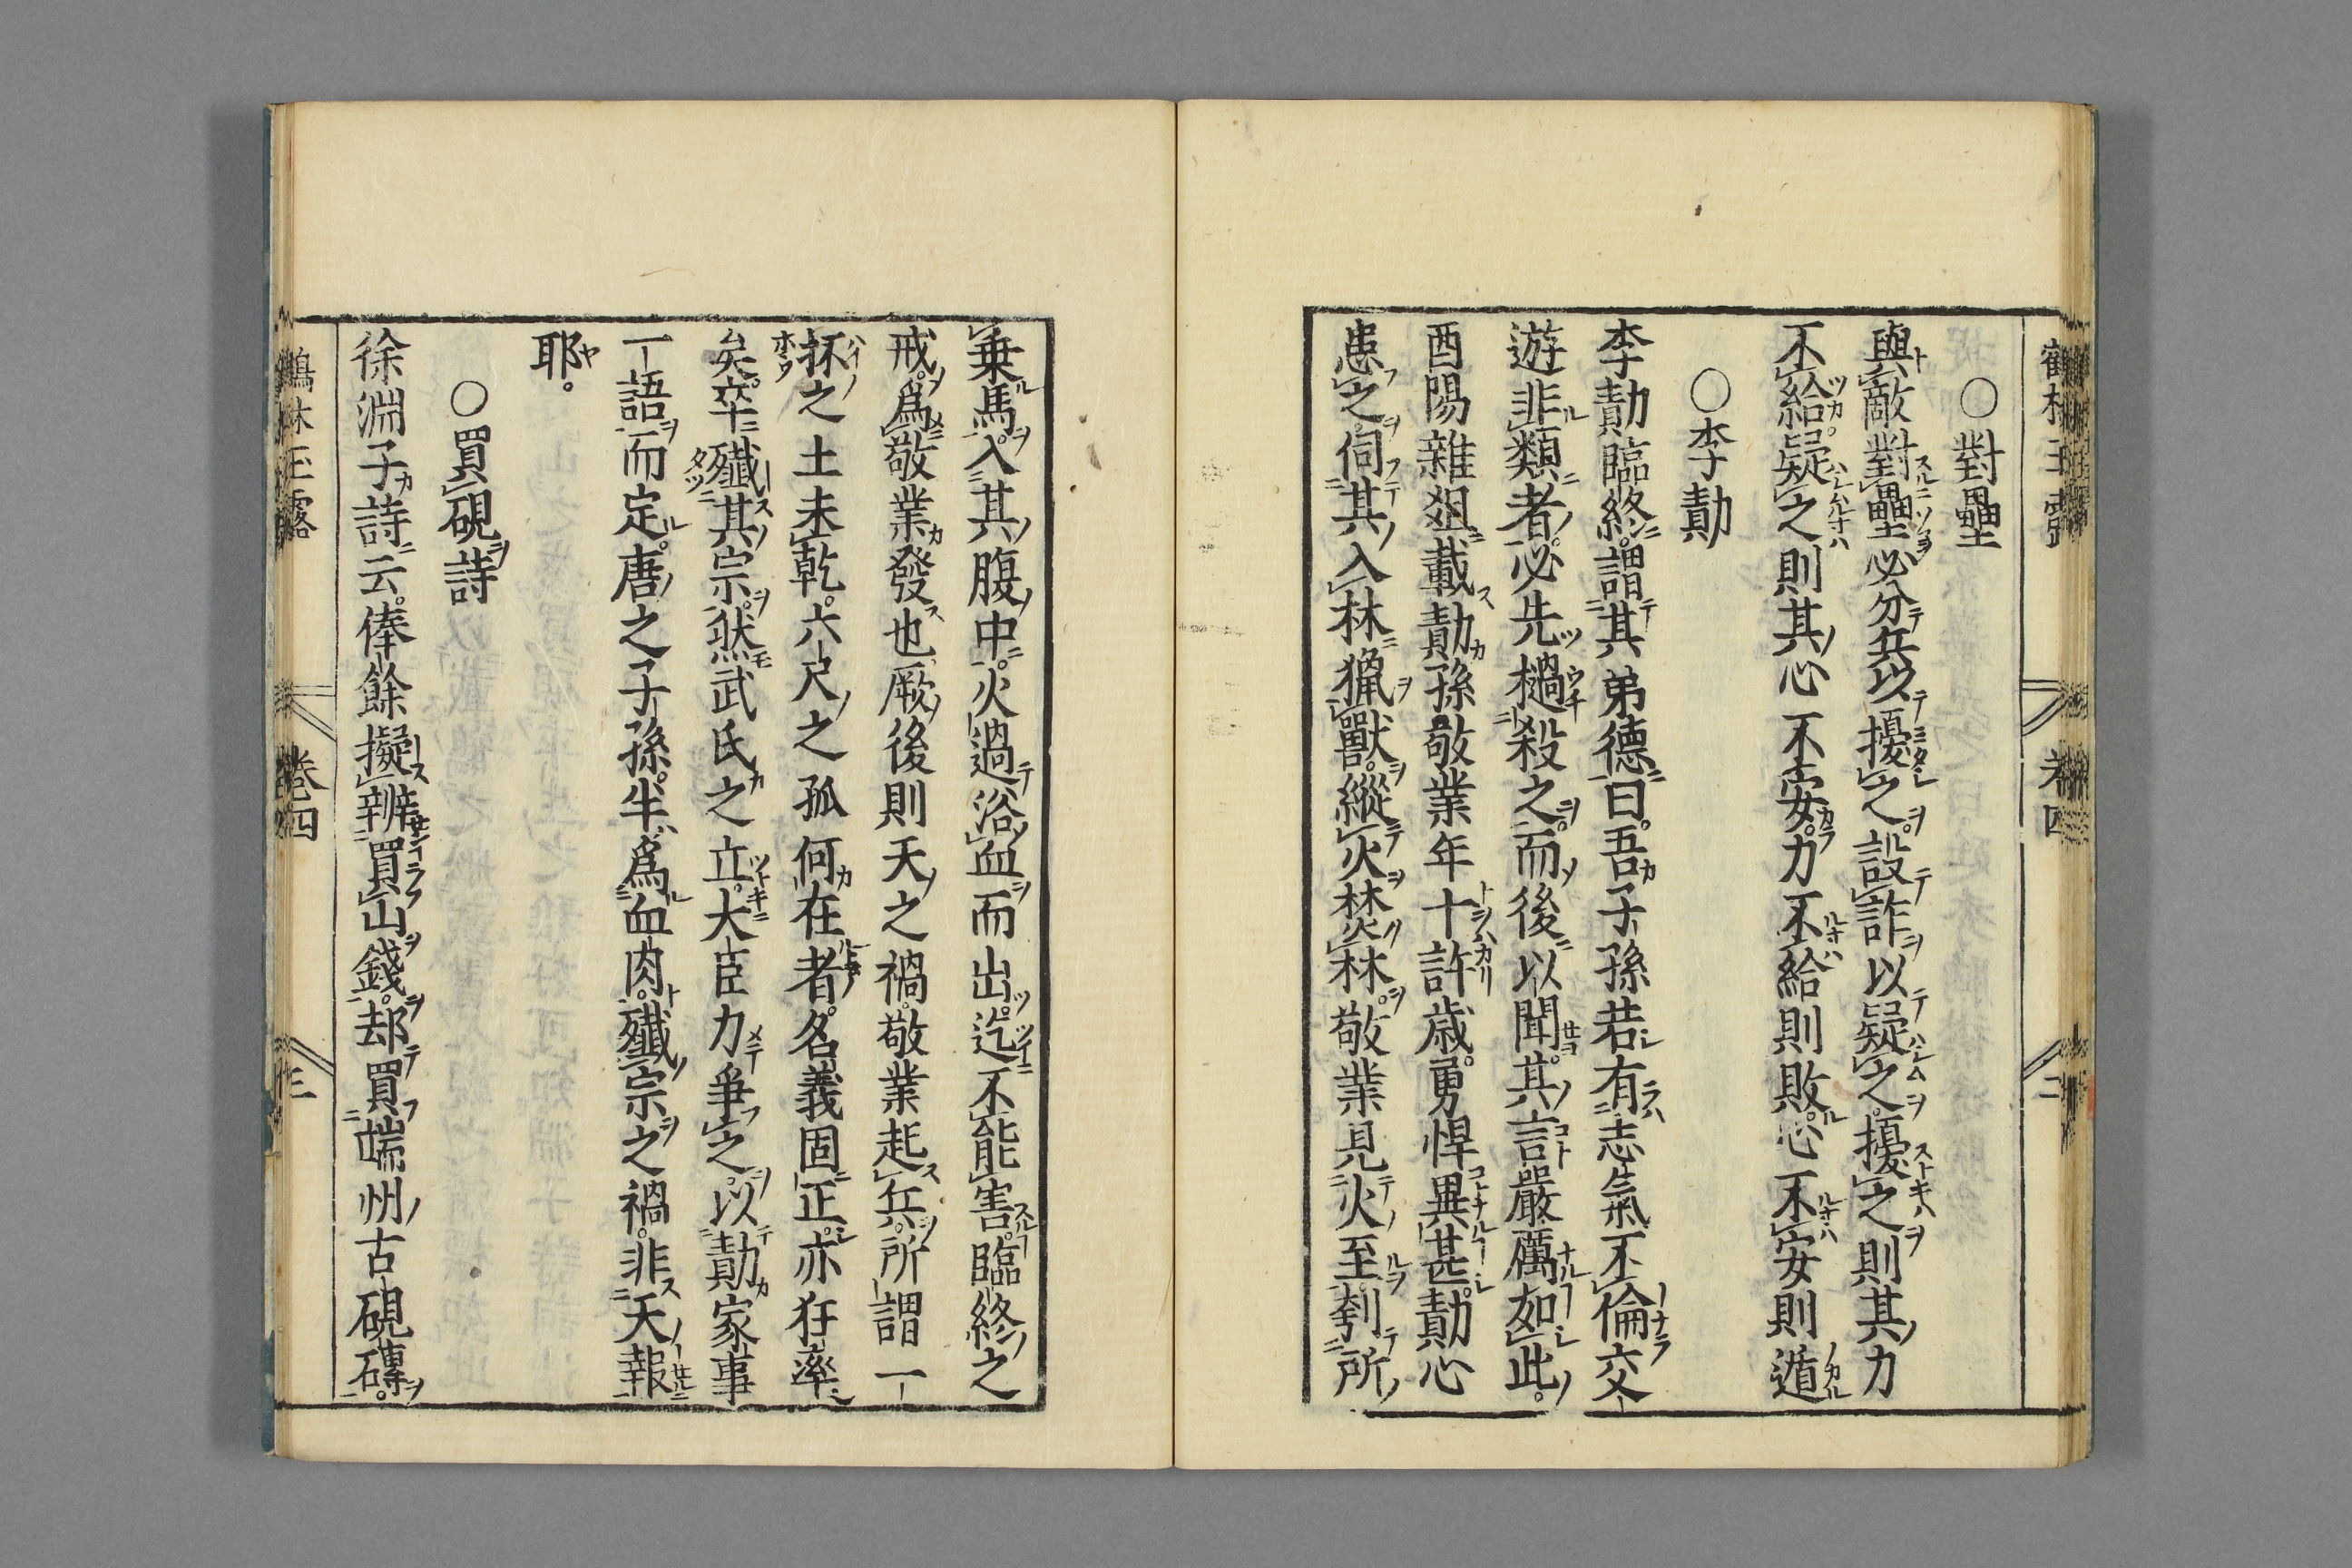 鶴林玉露 卷四 二
○對壘
與敵對壘必分兵以擾之。設詐以疑之。擾之則其力
不給。疑之則其心不安。力不給則敗。心不安則遁
○李勣
李勣臨終。謂其弟德曰。吾子孫若有志氣不倫交
遊非類者。必先檛殺之。而後以聞。其言嚴厲如此。
酉陽雜俎載勣孫敬業年十許歲。勇悍異甚。勣心
患之。伺其入林獵獸。縱火焚林。敬業見火至。刳所
乗馬。入其腹中。火過浴血而出。迄不能害。臨終之
戒。爲敬業發也。厥後則天之禍。敬業起兵。所謂一
抔之土未乾。六尺之孤何在者。名義固正。亦狂率
矣。卒殲其宗。然武氏之立。大臣力爭之。以勣家事
一語而定。唐之子孫。半爲血肉。殲宗之禍。非天報
耶。
○買硯詩
徐淵子詩云。俸餘擬辨買山錢。却買端州古硯磚。
鶴林玉露 卷四 三